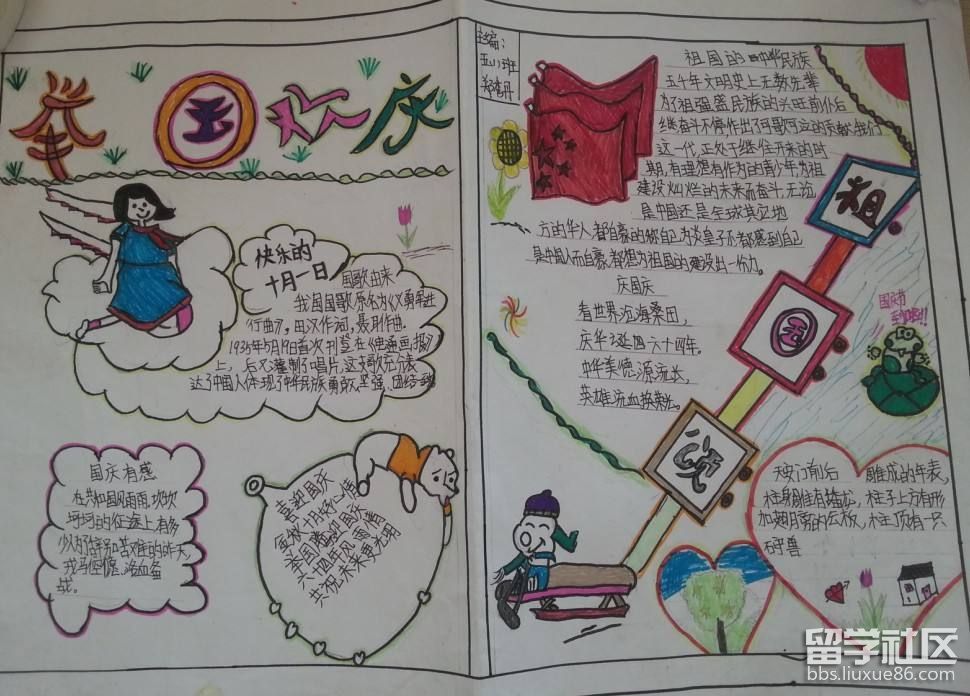 举国欢庆
快乐的
十月一日
国歌由来
我国国歌原名为《义勇军进
行曲》，田汉作词，聂耳作曲。
1935年5月19日首次刊登在《电通画报》
上，后又灌制了唱片，这支歌充分表
达了中国人体现了中华民族勇敢、坚强、团结
国庆有感
在共和国风雨雨，坎坎
坷坷的征途上，有多
少人
喜迎国庆
金秋十月
举国腾
六十四年风
共祝未来更光明
主编：
五（1）班
祖国的 中华民族
五千年文明史上无数先辈
为了祖强盛民族的兴旺前仆后
继奋斗不停作出了可歌可泣的贡献我们
这一代，正处于继往开来的时
期，有理想有作为的青少年为祖
建设灿烂的未来而奋斗，无论
是中国还是全球其它地
方的华人都自豪的称自己为炎皇子不都感到自己
是中国人而自豪，都想为祖国的建设出一份力。
庆国庆
看世界沉海桑田，
庆华诞四六十四年。
中华美德源流长，
英雄流血换来
祖
国
颂
国庆节
到啦!!
天安门前后
雕成的华表，
柱身雕有
柱子上方有形
加翅
的云板，柱顶有一只
石守兽
留学社区
bbs.liuxue86.com